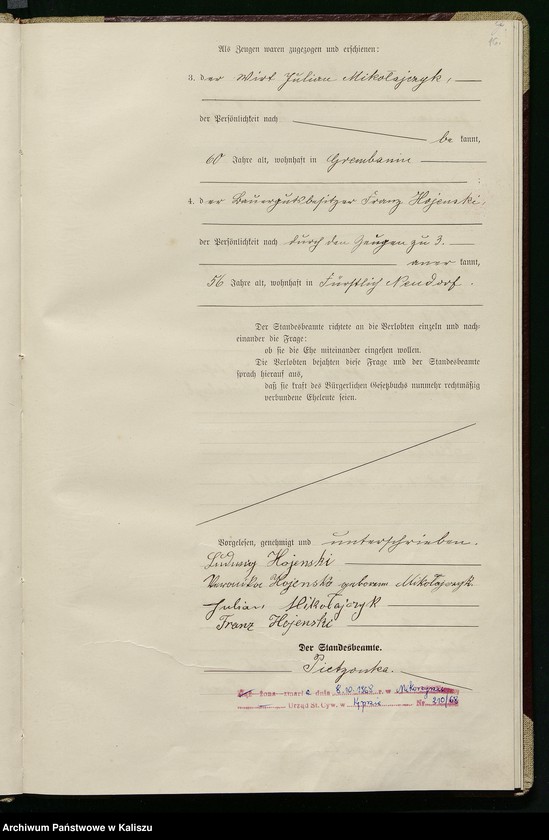 Als Zeugen waren zugezogen und erschienen:
3. der Wirt Julian Mikołajczyk,
der Persönlichkeit nach
be kannt,
60 Jahre alt, wohnhaft in Grembanin
;
4. der Bauergutsbesitzer Franz Hojenski,
der Persönlichkeit nach durch den Zeugen zu 3.
aner kannt,
56 Jahre alt, wohnhaft in Fürstlich Neudorf.
Der Standesbeamte richtete an die Verlobten einzeln und nach-
einander die Frage:
ob sie die Ehe miteinander eingehen wollen.
Die Verlobten bejahten diese Frage und der Standesbeamte
sprach hierauf aus,
daß sie kraft des Bürgerlichen Gesetzbuchs nunmehr rechtmäßig
verbundene Eheleute seien.
Vorgelesen, genehmigt und unterschrieben.
Ludwig Hojenski
Veronika Hojenska geborene Mikołajczyk
Julian Mikołajczyk
Franz Hojenski
Der Standesbeamte.
Pietzonka.
żona zmarła dnia 8.10.1968 r. w
Urząd St. Cyw. w Kępnie Nr. 210/68
Archiwum Państwowe w Kaliszu